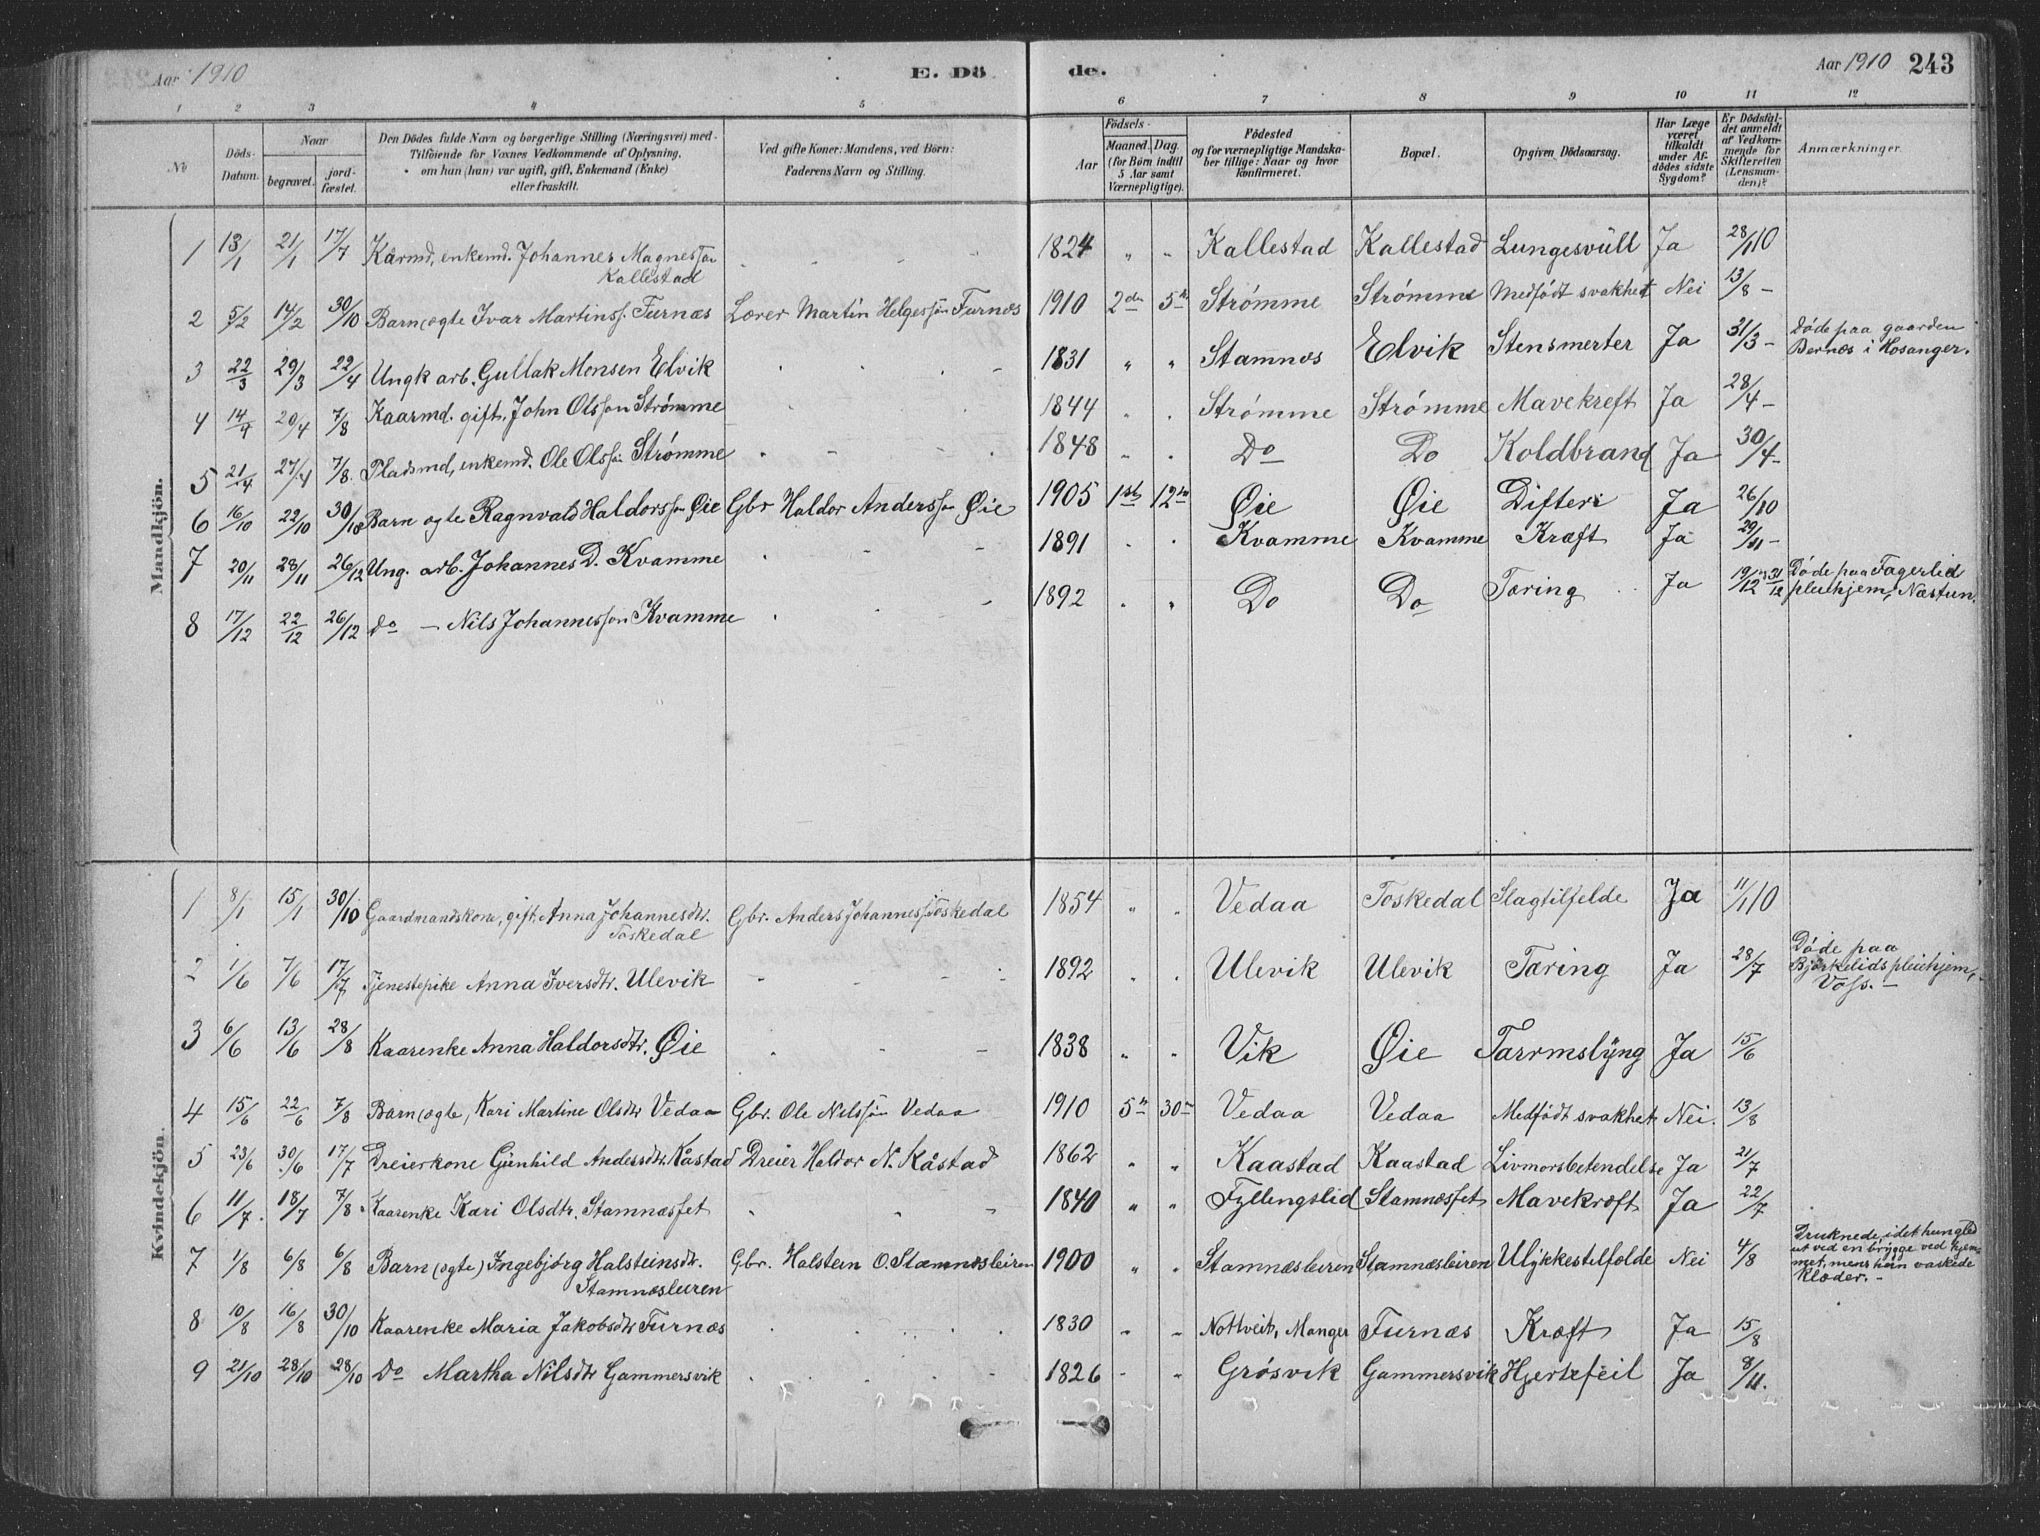 Aar 1910 E. Dö de. Aar 1910 243
1 2 3 4 5 6 7 8 9 10 11 12
No
Döds-Datum.
Naar
begravet.
jord-fæstet.
Den Dödes fulde Navn og borgerlige Stilling (Næringsvei) med-
Tilföiende for Voxnes Vedkommende af Oplysning,
om han (hun) var ugift, gift, Enkemand (Enke)
eller fraskilt.
Ved gifte Koner: Mandens, ved Börn:
Faderens Navn og Stilling.
Födsels-
Aar
Maaned. Dag.
(for Börn indtil
5 Aar samt
Værnepligtige).
Födested
og for værnepligtige Mandska-
ber tillige: Naar og hvor
konfirmeret.
Bopæl.
Opgiven Dödsaarsag.
Har Læge
været
tilkaldt
under Af-
dödes sidste
Sygdom?
Er Dödsfal-
det anmeldt
af Vedkom-
mende for
Skifteretten
(Lensman-
den)?
Anmærkninger.
Mandkjön.
1 13/1 21/1 17/7 Kårmd, enkemd. Johannes Magnesson Kallestad 1824 " " Kallestad Kallestad Lungesvüll Ja 28/1 10
2 5/2 14/2 30/10 Barn (ægte Ivar Martinss. Furnæs Lærer Martin Helgessøn Furnæs 1910 2den 5te Strømme Strømme Medfödt svakhet Nei 13/8 -
3 22/3 29/3 22/4 Ungk arb. Gullak Monsen Elvik 1831 " " Stamnæs Elvik Stensmerter Ja 31/3 - Døde paa gaarden
Bernæs i Hosanger.
4 14/4 20/4 7/8 Kaarmd. gift, John Olsson Strømme 1844 Strømme Strømme Mavekreft Ja 28/4 -
5 21/4 27/4 7/8 Pladsmd, enkemd. Ole Olssøn Strømme 1848 " " Do Do Koldbrand Ja 30/4 -
6 16/10 22/10 30/10 Barn ægte Ragnvald Haldorsson Øie Gbr Haldor Andersson Øie 1905 1ste 12te Øie Øie Difteri Ja 26/10
7 20/11 28/11 26/12 Ung. arb. Johannes D. Kvamme 1891 Kvamme Kvamme Kræft Ja 29/11 -
8 17/12 22/12 26/12 Do - Nils Johannesson Kvamme 1892 " " Do Do Tæring Ja 19/12 31/12 Døde paa Fagerlid
pleiehjem, Næstun.
Kvindekjön.
1 8/1 15/1 30/10 Gaardmandskone, gift, Anna Johannesdtr. Toskedal Gbr. Anders Johanness Toskedal 1854 " " Vedaa Toskedal Slagtilfelde Ja 11/1 10
2 1/6 7/6 17/7 Tjenestepike Anna Iversdtr. Ulevik 1892 " " Ulevik Ulevik Tæring Ja 28/7 Døde paa
Bjørkelids pleiehjem,
Voss. -
3 6/6 13/6 28/8 Kaarenke Anna Haldorsdtr. Øie 1838 " " Vik Øie Tarmslyng Ja 15/6
4 15/6 22/6 7/8 Barn (ægte, Kari Martine Olsdtr Vedaa Gbr. Ole Nilssøn Vedaa 1910 5te 30te Vedaa Vedaa Medfödt svakhet Nei. 13/8
5 23/6 30/6 17/7 Dreierkone Gunhild Andersdtr. Kåstad Dreier Haldor N. Kåstad 1862 " " Kaastad Kaastad Livmorsbetendelse Ja 21/7
6 11/7 18/7 7/8 Kaarenke Kari Olsdtr. Stamnæsfet 1840 " " Fyllingslid Stamnæsfet Mavekræft Ja 22/7
7 1/8 6/8 6/8 Barn (ægte) Ingebjørg Halsteinsdtr. Stamnæsleiren Gbr. Halstein O. Stamnæsleiren 1900 " " Stamnæsleiren Stamnæsleiren Ulykkestilfælde Nei 4/8 Druknede, idet hun gled
ut ved en brygge ved hjem-
met, mens hun vaskede
klæder. -
8 10/8 16/8 30/10 Kaarenke Maria Jakobsdtr Furnæs 1830 " " Nottveit, Manger Furnæs Kræft Ja 15/8
9 21/10 28/10 28/10 Do Martha Nilsdtr Gammersvik 1826 " " Grøsvik Gammersvik Hjertefeil Ja 8/11.